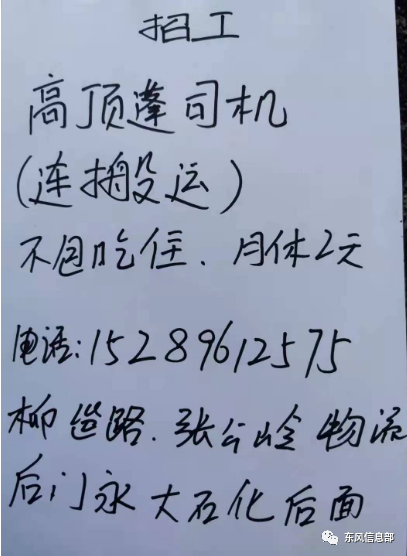 招工
高顶蓬司机
(连搬运)
不包吃住、月休2天
电话:15289612575
柳邕路、张公岭物流
后门永大石化后面
东风信息部